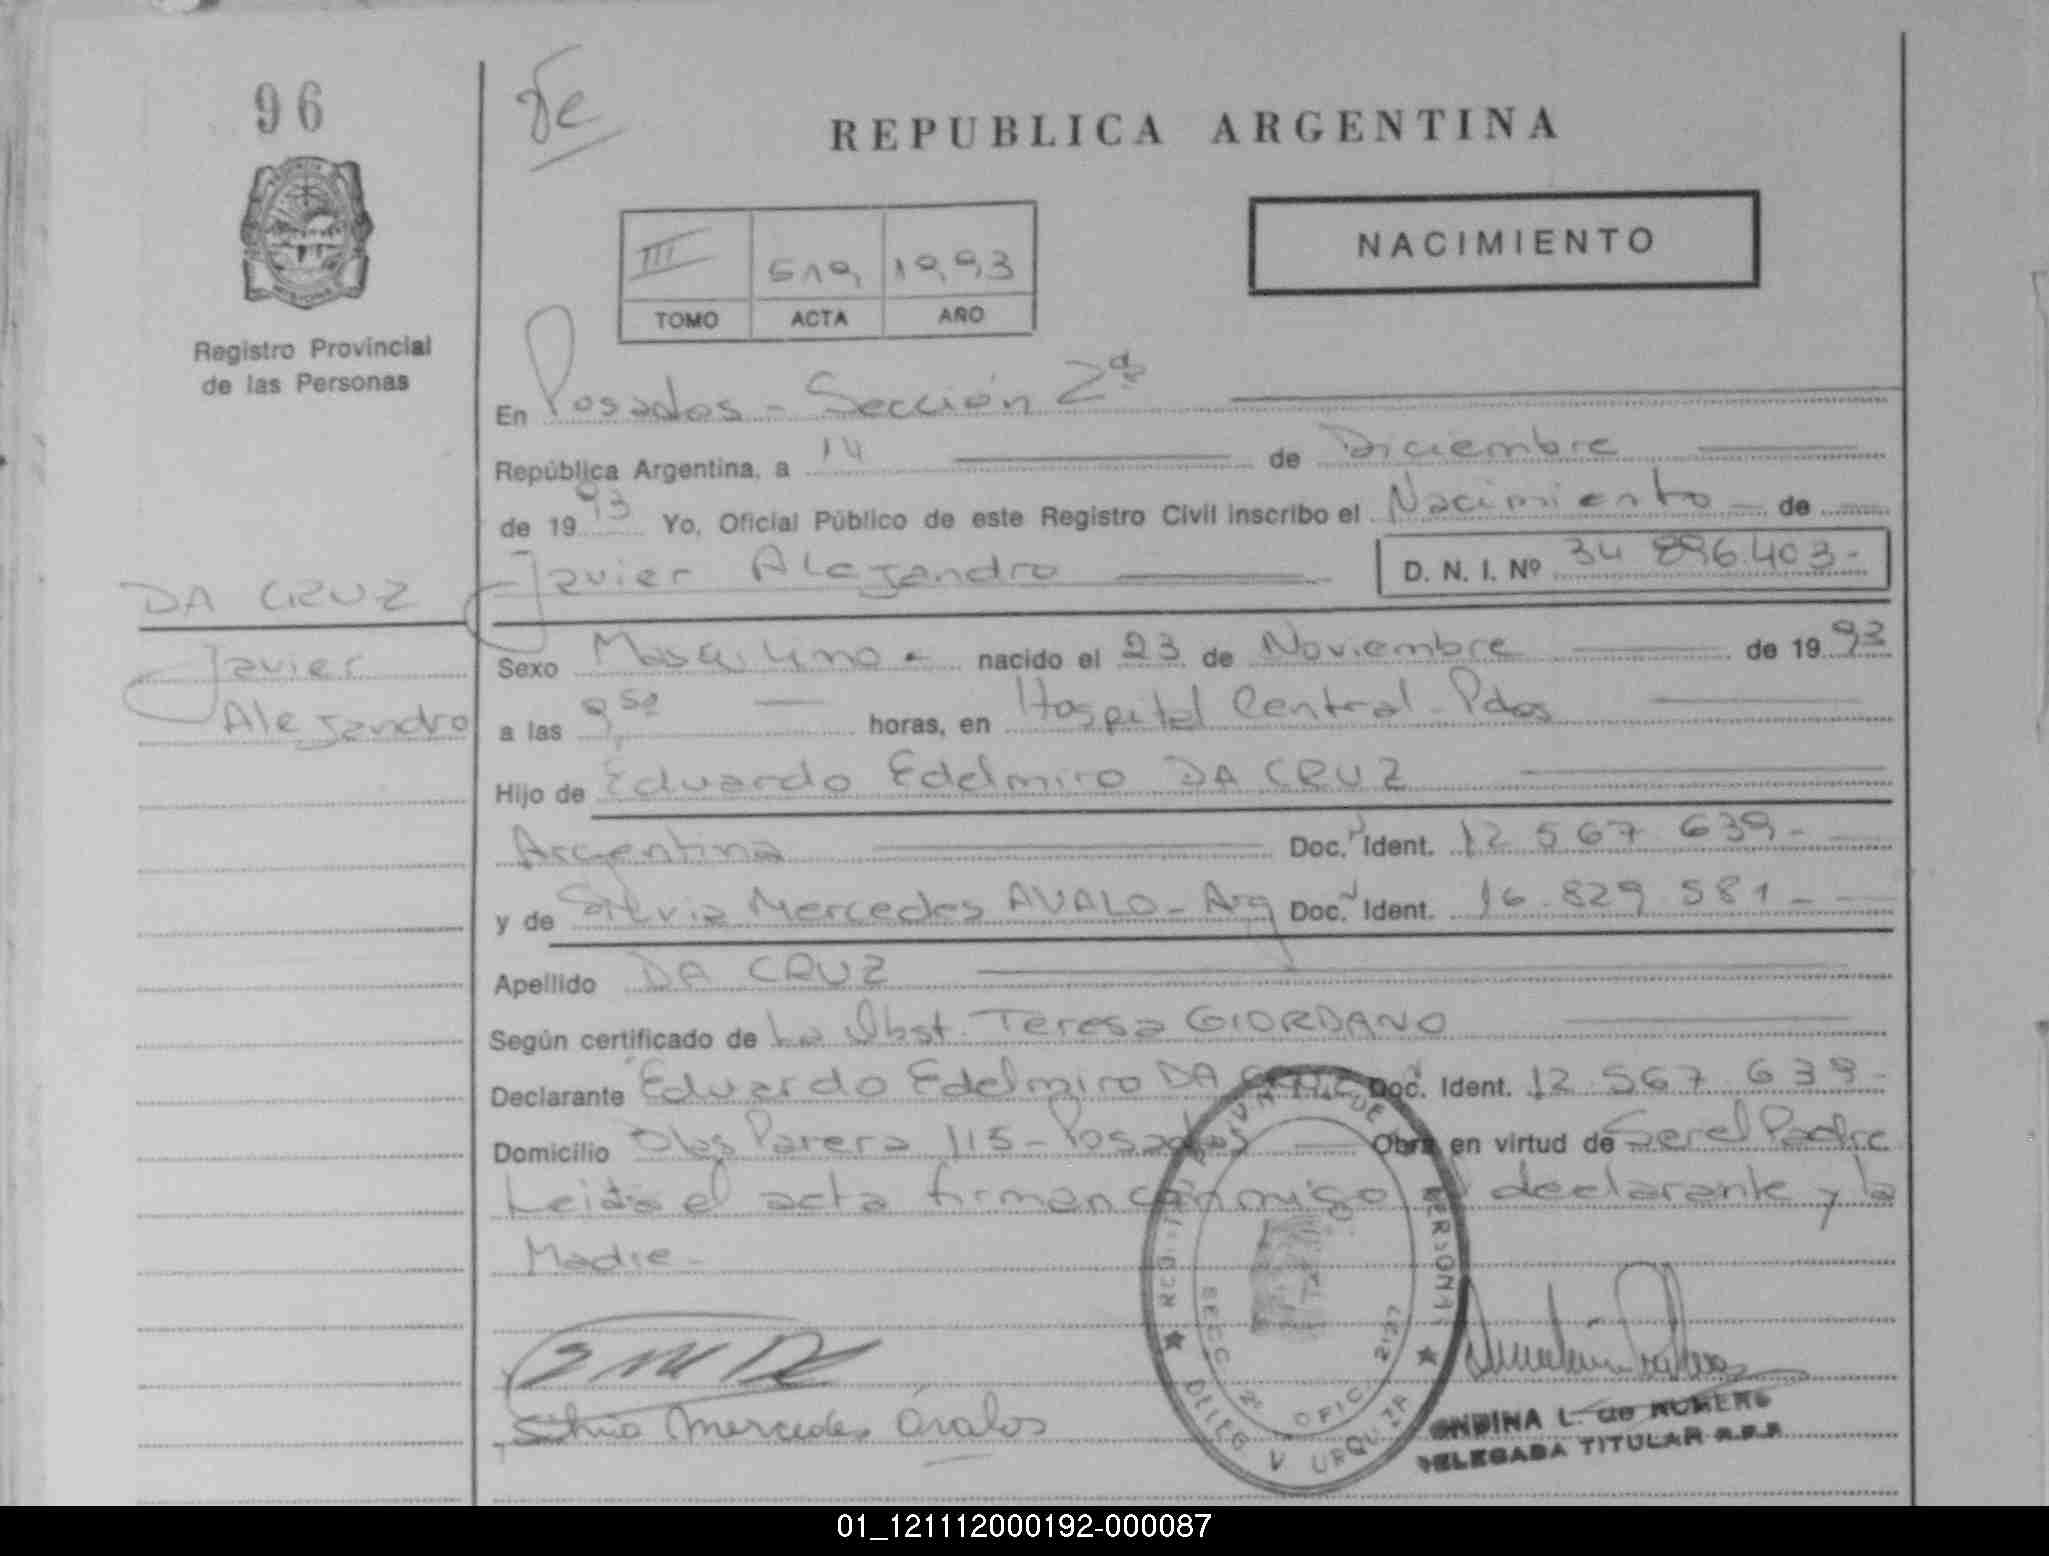 96
REPUBLICA ARGENTINA
NACIMIENTO
III 519 1993
TOMO ACTA AÑO
Registro Provincial
de las Personas
En Posadas - Sección 2da
República Argentina, a 14 de Diciembre
de 1993 Yo, Oficial Público de este Registro Civil inscribo el Nacimiento - de
Javier Alejandro D. N. I. Nº 34 896.403-
DA CRUZ
Javier
Alejandro
Sexo Masculino - nacido el 23 de Noviembre de 1993
a las 9,50 horas, en Hospital Central - Pdas
Hijo de Eduardo Edelmiro DA CRUZ
Argentina Doc. Ident. 12 567 639-
y de Silvia Mercedes AVALO - Arg Doc. Ident. 16.829 581-
Apellido DA CRUZ
Según certificado de La Obst. Teresa GIORDANO
Declarante Eduardo Edelmiro DA CRUZ Doc. Ident. 12 567 639-
Domicilio Blas Parera 115 - Posadas Obra en virtud de Ser el Padre
Leida el acta firman conmigo declarante y la
Madre-
Silvia Mercedes Avalos
SECC. 2º OFIC. 2127
DELEG V URQUIZA
PERSONAS
ONDINA L. de ROMERO
DELEGADA TITULAR R.P.P.
01_121112000192-000087